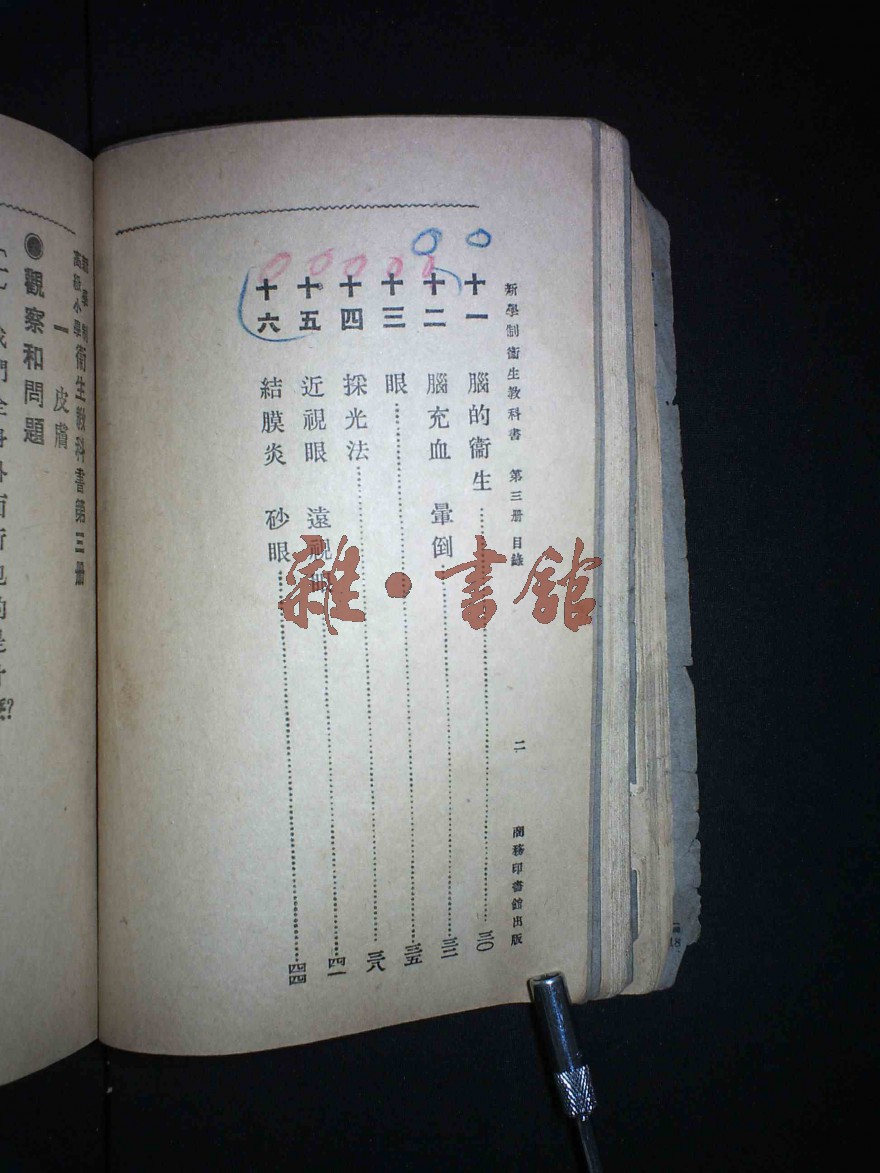 新學制衞生教科書 第三册 目錄 二 商務印書館出版
十一 腦的衞生 三〇
十二 腦充血 暈倒 三三
十三 眼 三五
十四 採光法 三八
十五 近視眼 遠視眼 四一
十六 結膜炎 砂眼 四四
雜·書館
新學制高級小學衞生教科書第三册
一 皮膚
●觀察和問題
18